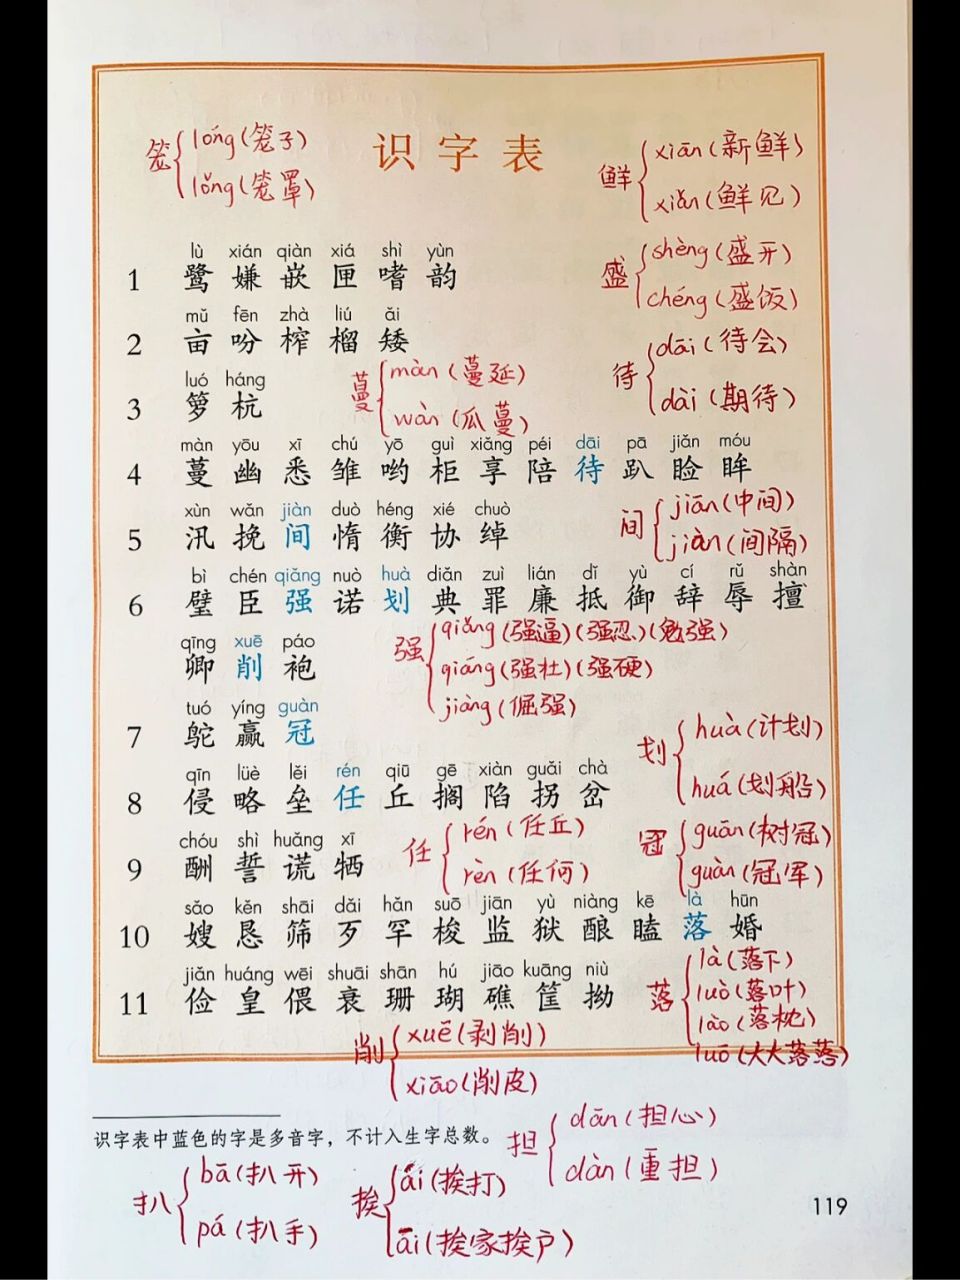 识字表
笼 lóng(笼子)
lǒng(笼罩)
鲜 xiān(新鲜)
xiǎn(鲜见)
盛 shèng(盛开)
chéng(盛饭)
待 dāi(待会)
dài(期待)
lù xián qiàn xiá shì yùn
1 鹭 嫌 嵌 匣 嗜 韵
mǔ fēn zhà liú ǎi
2 亩 吩 榨 榴 矮
luó háng
3 箩 杭
蔓 màn(蔓延)
wàn(瓜蔓)
màn yōu xī chú yō guì xiǎng péi dāi pā jiǎn móu
4 蔓 幽 悉 雏 哟 柜 享 陪 待 趴 睑 眸
xùn wǎn jiàn duò héng xié chuò
5 汛 挽 间 惰 衡 协 绰
间 jiān(中间)
jiàn(间隔)
bì chén qiǎng nuò huà diǎn zuì lián dǐ yù cí rǔ shàn
6 璧 臣 强 诺 划 典 罪 廉 抵 御 辞 辱 擅
qīng xuē páo
卿 削 袍
强 qiǎng(强逼)(强忍)(勉强)
qiáng(强壮)(强硬)
jiàng(倔强)
tuó yíng guàn
7 鸵 赢 冠
划 huà(计划)
huá(划船)
qīn lüè lěi rén qiū gē xiàn guǎi chà
8 侵 略 垒 任 丘 搁 陷 拐 岔
chóu shì huǎng xī
9 酬 誓 谎 牺
任 rén(任丘)
rèn(任何)
冠 guān(树冠)
guàn(冠军)
sǎo kěn shāi dǎi hǎn suō jiān yù niàng kē là hūn
10 嫂 恳 筛 歹 罕 梭 监 狱 酿 瞌 落 婚
jiǎn huáng wēi shuāi shān hú jiāo kuāng niù
11 俭 皇 偎 衰 珊 瑚 礁 筐 拗
落 là(落下)
luò(落叶)
lào(落枕)
luō(大大落落)
削 xuē(剥削)
xiāo(削皮)
识字表中蓝色的字是多音字，不计入生字总数。
担 dān(担心)
dàn(重担)
扒 bā(扒开)
pá(扒手)
挨 ái(挨打)
āi(挨家挨户)
119